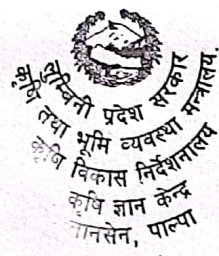 लुम्बिनी प्रदेश सरकार
कृषि तथा भूमि व्यवस्था मन्त्रालय
कृषि विकास निर्देशनालय
कृषि ज्ञान केन्द्र
तानसेन, पाल्पा